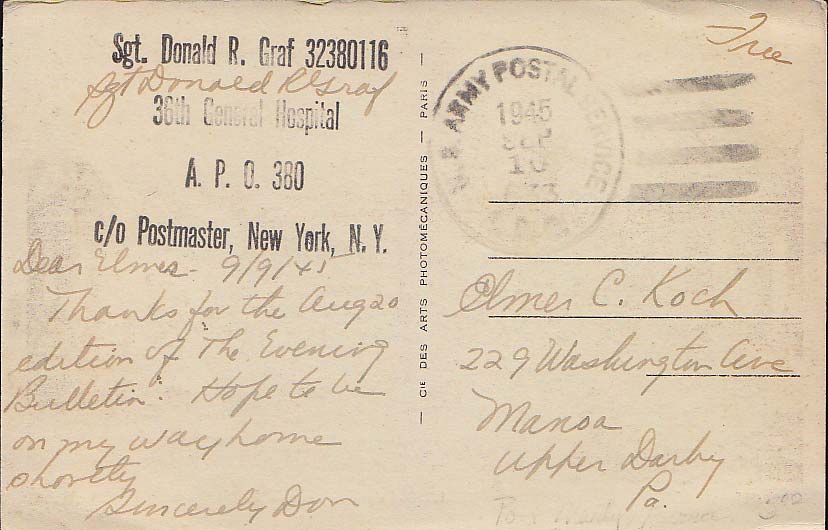 Sgt. Donald R. Graf 32380116
Sgt Donald R Graf
36th General Hospital
A. P. O. 380
c/o Postmaster, New York, N. Y.
Dear Elmer- 9/9/45
Thanks for the Aug 20
edition of "The Evening
Bulletin". Hope to be
on my way home
shortly
Sincerely Don
— CIE DES ARTS PHOTOMÉCANIQUES — PARIS —
U.S. ARMY POSTAL SERVICE
1945
SEP
10
Free
Elmer C. Koch
229 Washington Ave
Manoa
Upper Darby
Pa.